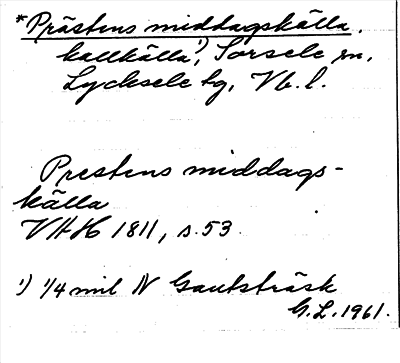 *Prästens middagskälla.
kallkälla¹), Sorsele sn,
Lycksele tg, Vb. l.
Prestens middags-
källa
VHH 1811, s. 53.
¹) 1/4 mil N Gautsträsk
G.L. 1961.